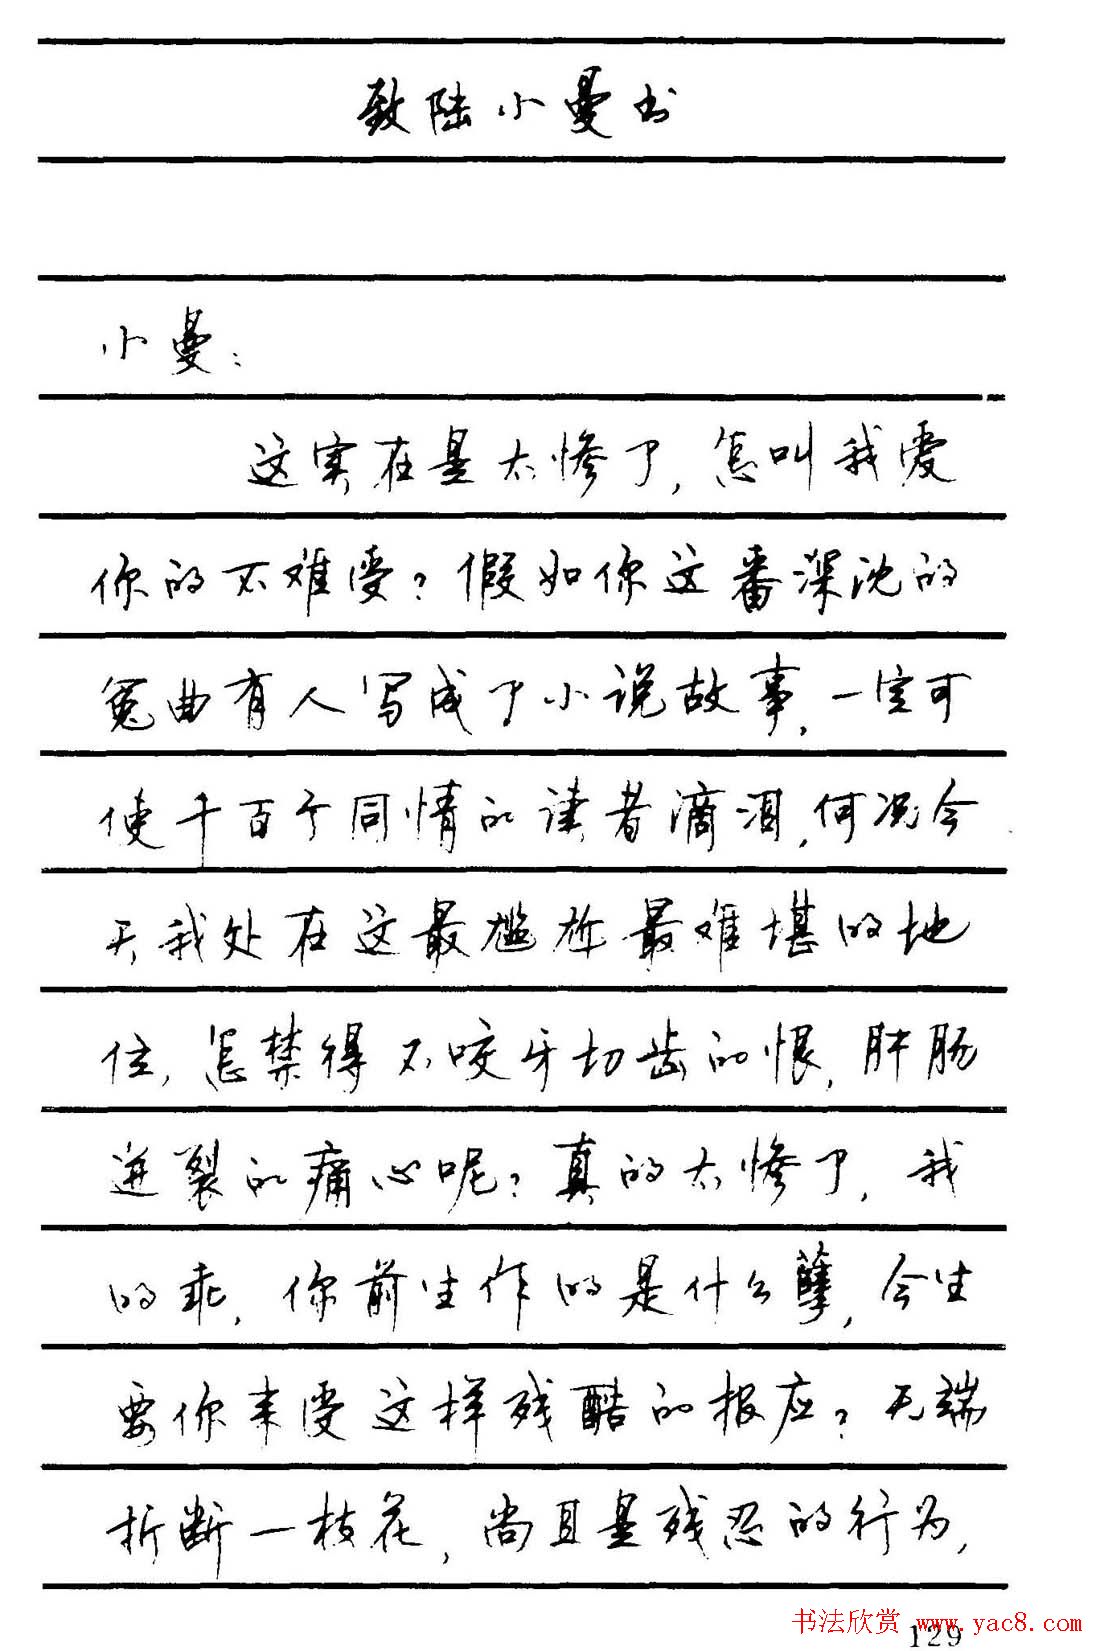 致陆小曼书
小曼：
这实在是太惨了，怎叫我爱
你的不难受？假如你这番深沈的
冤曲有人写成了小说故事，一定可
使千百个同情的读者滴泪，何况今
天我处在这最尴尬最难堪的地
位，怎禁得不咬牙切齿的恨，肝肠
迸裂的痛心呢？真的太惨了，我
的乖，你前生作的是什么孽，今生
要你来受这样残酷的报应？无端
折断一枝花，尚且是残忍的行为，
书法欣赏 www.yac8.com
129